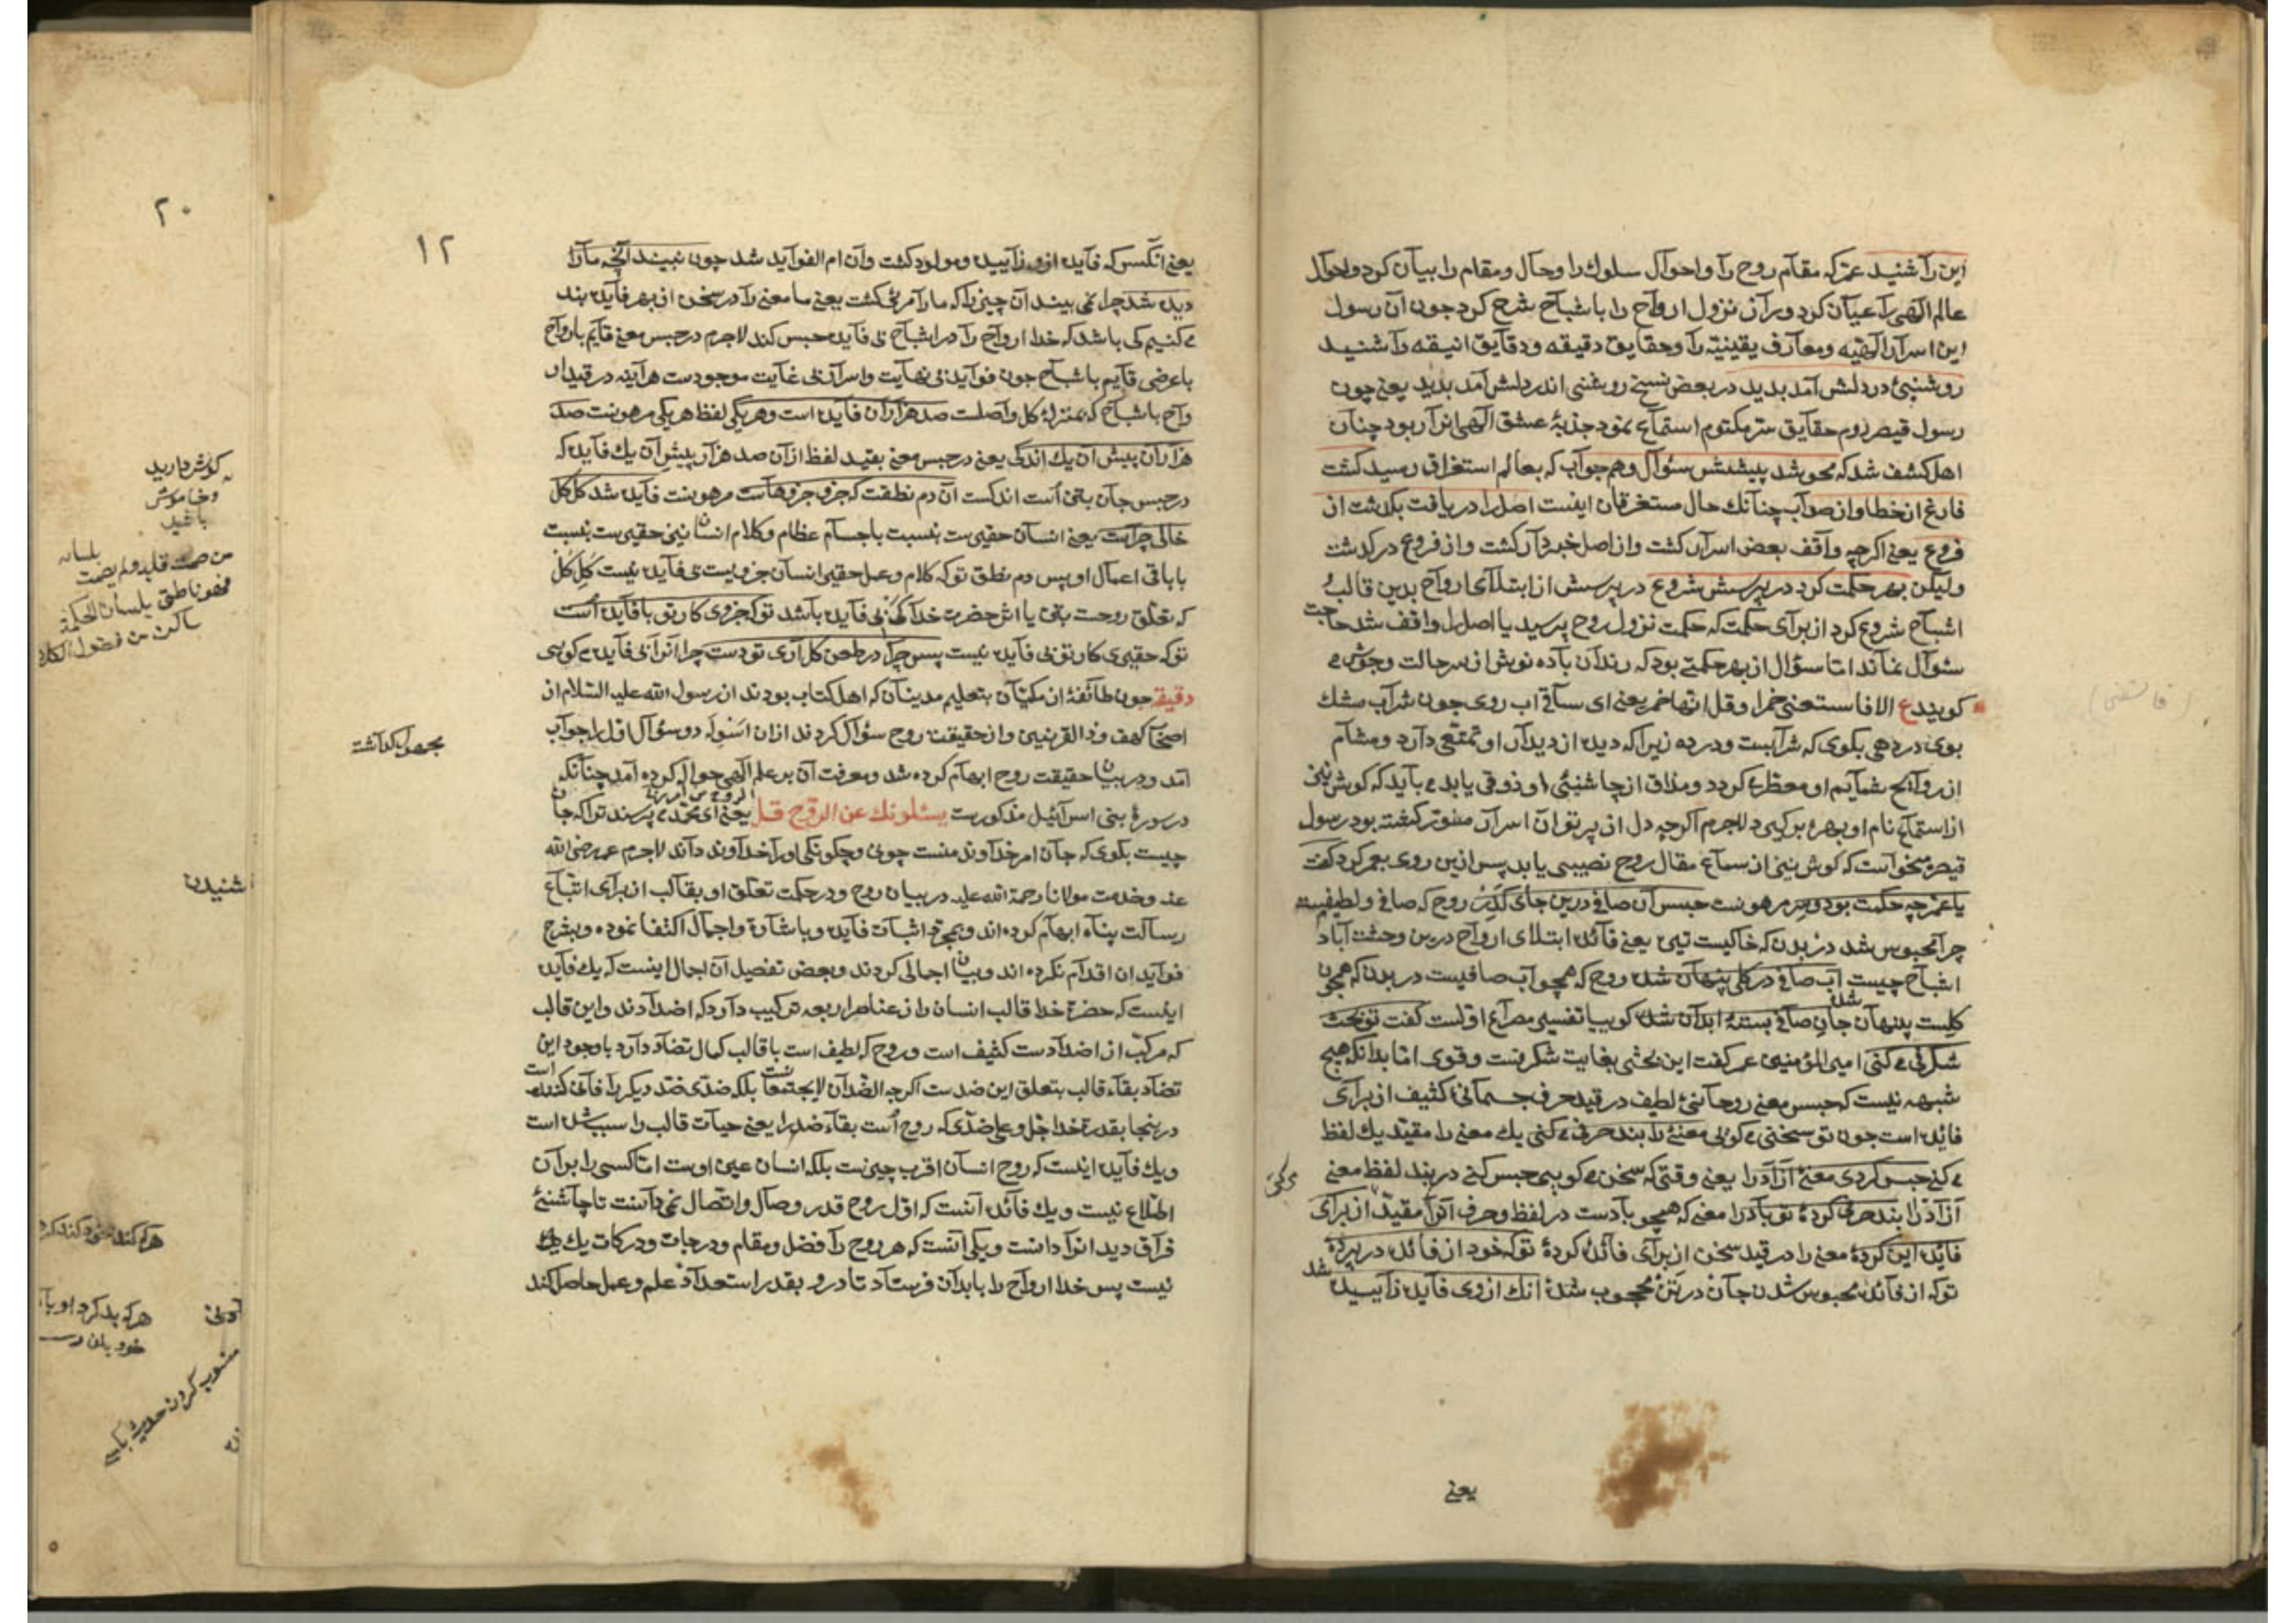 این را شنید عمر که مقام روح را و احوال سلوك را و حال و مقام را بیان کرد و احوال
عالم الهی را عیان کرد و از نزول ارواح را با شباح شرح کرد جون آن رسول
این اسرار الهیه و معارف یقینیه را و حقایق دقیقه و دقایق انیقه را شنید
روشنیئ در دلش آمد بدید در بعض نسخ روشنی اندر دلش آمد بدید یعنی چون
رسول قیصر روم حقایق سر مکتوم استماع نمود جذبۀ عشق الهی انرا ربود چنان
اهل کشف شد که محو شد پیشش سؤال و هم جواب که بعالم استغراق رسید کشت
فارغ از خطا و از صواب چنانك حال مستغرقان اینست اصل را دریافت بکذشت از
فروع یعنی اکرچه واقف بعض اسرار کشت و از اصل خبردار کشت و از فروع در کذشت
ولیکن بهر حکمت کرد در پرسش شروع در پرسش از ابتلای ارواح بدین قالب و
اشباح شروع کرد از برای حکمت که حکمت نزول روح پرسید یا اصل را واقف شد حاجت
سئوال نماند امّا سؤال از بهر حکمتی بود که رندان باده نوش از سر حالت و جوش می
کویند ع الا فاسقنی خمرا و قل لی انها خمر یعنی ای ساقی اب روی جون شراب مشك
بوی در دهی بکوی که شرابست و در ده زیرا که دیده از دیدار او تمتعی دارد و مشام
از روایح شمایم او معطر می کردد و مذاق از چاشنیئ او ذوقی یابد می باید که کوش نیز
از استماع نام او بهره برکیرد لاجرم اکرچه دل از پرتو ان اسرار منور کشته بود رسول
قیصر میخواست که کوش نیز از سماع مقال روح نصیبی یابد پس ازین روی بعمر کرد کفت
یا عمر چه حکمت بود و سر مرهونست حبس آن صافی درین جای کدر روح که صافی و لطیفست
چرا محبوس شد در بدن که خاکیست تیره یعنی فائدۀ ابتلای ارواح درین وحشت آباد
اشباح چیست اب صافی در کلی پنهان شده روح که همچو آب صافیست در بدن که همچون
کلست پنهان شده جان صافی بستۀ ابدان شده کوییا تفسیر مصراع اولست کفت تو بحث
شکرفی می کنی امیر المؤمنین عمر کفت این بحثی بغایت شکرفست و قوی امّا بدانکه هیچ
شبهه نیست که حبس معنی روحانئ لطیف در قید حرف جسمانی کثیف از برای
فائده است جون تو سخنی می کویی معنئ را بند حرفی می کنی یك معنی را مقیّد یك لفظ
می کنی حبس کردی معنئ آزاد را یعنی وقتی که سخن می کویی حبس کنی در بند لفظ معنی
آزاد را بند حرفی کردۀ تو باد را معنی که همچو بادست در لفظ و حرف آنرا مقیّد از برای
فایده این کردۀ معنی را در قید سخن از برای فائده کردۀ تو که خود از فائده در پردۀ
تو که از فائده محبوس شدن جان در تن محجوب شدۀ انك از وی فایده زاییده شد
یعنی
۱۲
یعنی انکس که فایده ازو زاییده و مولود کشت و آن ام الفواید شد چون نبیند آنچه ما را
دیده شد چرا نمی بیند آن چیز را که ما را مرئ کشت یعنی ما معنی را در سخن از بهر فایده بند
می کنیم کی باشد که خدا ارواح را در اشباح بی فایده حبس کند لاجرم در حبس معنی قایم بارواح
با عرضی قایم باشباح جون فواید بی نهایت و اسرار بی غایت موجودست هر آینه در قید ار
واح باشباح که بمنزلۀ کل و اصلست صد هزاران فایده است و هر یکی لفظ هر یکی مرهونست صد
هزاران پیش آن یك اندکی یعنی در حبس معنی بقید لفظ از آن صد هزار پیش آن یك فایده که
در حبس جان باتن است اندکست آن دم نطقت که جزو جزوهاست مرهونست فایده شد کل کل
خالی چراست یعنی انسان حقیرست بنسبت باجسام عظام و کلام انسان نیز حقیرست بنسبت
با باقی اعمال او پس دم نطق تو که کلام و عمل حقیر انسان جزویست بی فایده نیست کل کل
که تعلق روحت بتن یا اثر حضرت خدا کی بی فایده باشد تو که جزوی کار تو با فایده است
تو که حقیری کار تو بی فایده نیست پس چرا در طعن کل آری تو دست چرا انرا بی فایده می کویی
دقیقه جون طائفۀ از مکیان بتعلیم مدینان که اهل کتاب بودند از رسول الله علیه السلام از
اصحاب کهف و ذالقرنین و از حقیقت روح سؤال کردند ازان اسوله دو سؤال اول را جواب
آمد و در بیان حقیقت روح ابهام کرده شد و معرفت آن بر علم الهی حواله کرده آمد چنانکه
در سورۀ بنی اسرائیل مذکورست یسئلونك عن الروح قل الروح من امر ربی یعنی ای محمّد می پرسند ترا که جان
چیست بکوی که جان امر خداوند منست چونی و چکونکی اورا خداوند داند لاجرم عمر رضی الله
عنه و خدمت مولانا رحمة الله علیه در بیان روح و در حکمت تعلق او بقالب از برای اتباع
رسالت پناه ابهام کرده اند و بمجرد اثبات فایده و باشارة و اجمال اکتفا نموده و بشرح
فواید ان اقدام نکرده اند و بیان اجمالی کردند و بعض تفصیل آن اجمال اینست که یك فایده
اینست که حضرة خدا قالب انسان را از عناصر اربعه ترکیب داد که اضدادند و این قالب
که مرکب از اضدادست کثیف است و روح که لطیف است با قالب کمال تضاد دارد با وجود این
تضاد بقاء قالب بتعلق این ضدست اکرچه الضدان لا یجتمعانست بلکه ضدّی ضد دیکر را فانی کننده است
درینجا بقدرة خدا جل و علی ضدّی که روح است بقاء ضد را یعنی حیات قالب را سبب شده است
ویك فایده اینست که روح انسان اقرب چیزست بلکه انسان عین اوست امّا کسی را بر آن
اطلاع نیست و یك فائده آنست که اول روح قدر وصال و اتصال نمی دانست تا چاشنئ
فراق دید انرا دانست و یکی آنست که هر روح را فضل و مقام و درجات و درکات یك یك
نیست پس خدا ارواح را بابدان فرستاد تا درو بقدر استعداد علم و عمل حاصل کند
مجهول کذاشت
۲۰
کوش دارید
و خاموش
باشید
من صمت قلبه ولم یصمت لسانه
فهو ناطق بلسان الحکمة
ساکن من فضول الکلام
شنیدن
هر که بد کرد او با
منسوب کردن حدیث بکسی